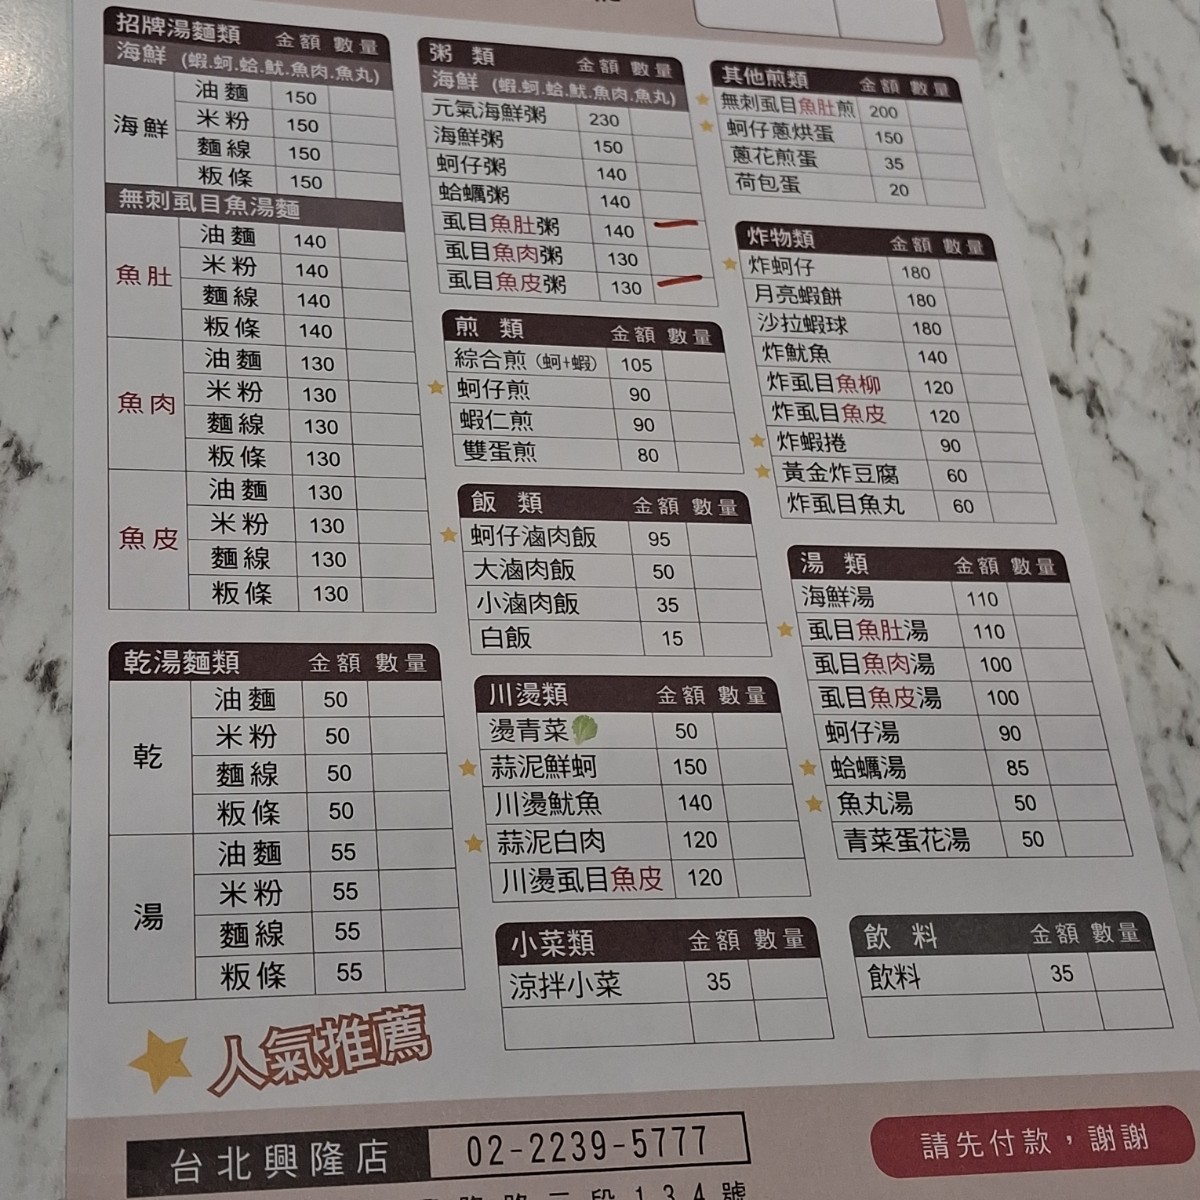 招牌湯麵類 金額 數量
海鮮 (蝦.蚵.蛤.魷.魚肉.魚丸)
海鮮
油麵 150
米粉 150
麵線 150
粄條 150
無刺虱目魚湯麵
魚肚
油麵 140
米粉 140
麵線 140
粄條 140
魚肉
油麵 130
米粉 130
麵線 130
粄條 130
魚皮
油麵 130
米粉 130
麵線 130
粄條 130
乾湯麵類 金額 數量
乾
油麵 50
米粉 50
麵線 50
粄條 50
湯
油麵 55
米粉 55
麵線 55
粄條 55
人氣推薦
粥類 金額 數量
海鮮 (蝦.蚵.蛤.魷.魚肉.魚丸)
元氣海鮮粥 230
海鮮粥 150
蚵仔粥 140
蛤蠣粥 140
虱目魚肚粥 140
虱目魚肉粥 130
虱目魚皮粥 130
煎類 金額 數量
綜合煎(蚵+蝦) 105
蚵仔煎 90
蝦仁煎 90
雙蛋煎 80
飯類 金額 數量
蚵仔滷肉飯 95
大滷肉飯 50
小滷肉飯 35
白飯 15
川燙類 金額 數量
燙青菜 50
蒜泥鮮蚵 150
川燙魷魚 140
蒜泥白肉 120
川燙虱目魚皮 120
小菜類 金額 數量
涼拌小菜 35
其他煎類 金額 數量
無刺虱目魚肚煎 200
蚵仔蔥烘蛋 150
蔥花煎蛋 35
荷包蛋 20
炸物類 金額 數量
炸蚵仔 180
月亮蝦餅 180
沙拉蝦球 180
炸魷魚 140
炸虱目魚柳 120
炸虱目魚皮 120
炸蝦捲 90
黃金炸豆腐 60
炸虱目魚丸 60
湯類 金額 數量
海鮮湯 110
虱目魚肚湯 110
虱目魚肉湯 100
虱目魚皮湯 100
蚵仔湯 90
蛤蠣湯 85
魚丸湯 50
青菜蛋花湯 50
飲料 金額 數量
飲料 35
台北興隆店 02-2239-5777
請先付款，謝謝
路二段134號